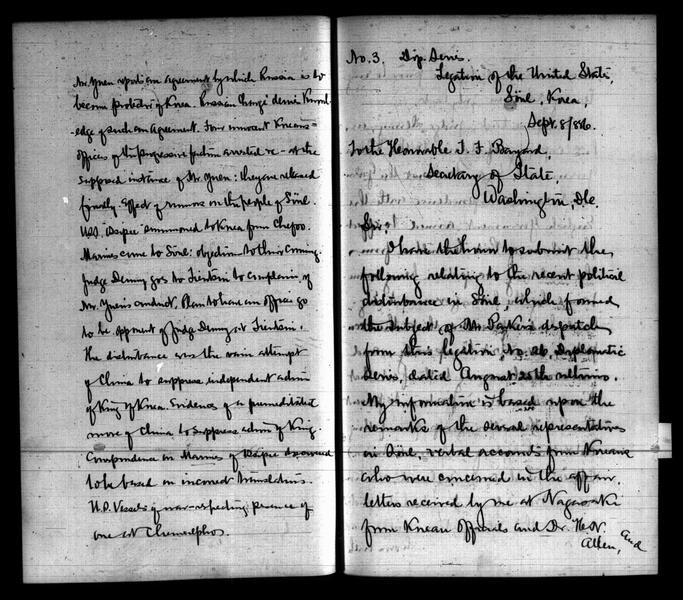 Mr. Yuen reports an agreement by which Russia is to
become protector of Korea. Russian Chargé denies Knowl-
-edge of such an Agreement. Four innocent Koreans =
officers of the progressive faction arrested &c - at the
supposed instance of Mr. Yuen: they are released
finally. Effect of rumors on the people of Söul.
U.S.S. Ossipee summoned to Korea from Chefoo.
Marines come to Söul: objection to their coming.
Judge Denny goes to Tientsin to complain of
Mr. Yuen's conduct. Plan to have an officer go
to be opponent of Judge Denny at Tientsin.
The disturbance was the vain attempt
of China to suppress independent action
of King of Korea. Evidences of a premeditated
move of China to suppress action of King.
Correspondence on Marines of Ossipee discovered
to be based on incorrect translations.
U.S. Vessels of war - respecting presence of
one at Chemulpho.
No. 3. Dip. Series.
Legation of the United States,
Söul, Korea,
Sept. 8/886.
To the Honorable T. F. Bayard,
Secretary of State,
Washington, D.C.
Sir:
I have the honor to submit the
following relating to the recent political
disturbance in Söul, which formed
the subject of Mr. Parker's dispatch
from this legation, No. 26, Diplomatic
Series, dated August 25th ultimo.
My information is based upon the
remarks of the several representatives
in Söul, verbal accounts from Koreans
who were concerned in the affair,
letters received by me at Nagasaki
from Korean Officials and Dr. H. N.
Allen, and